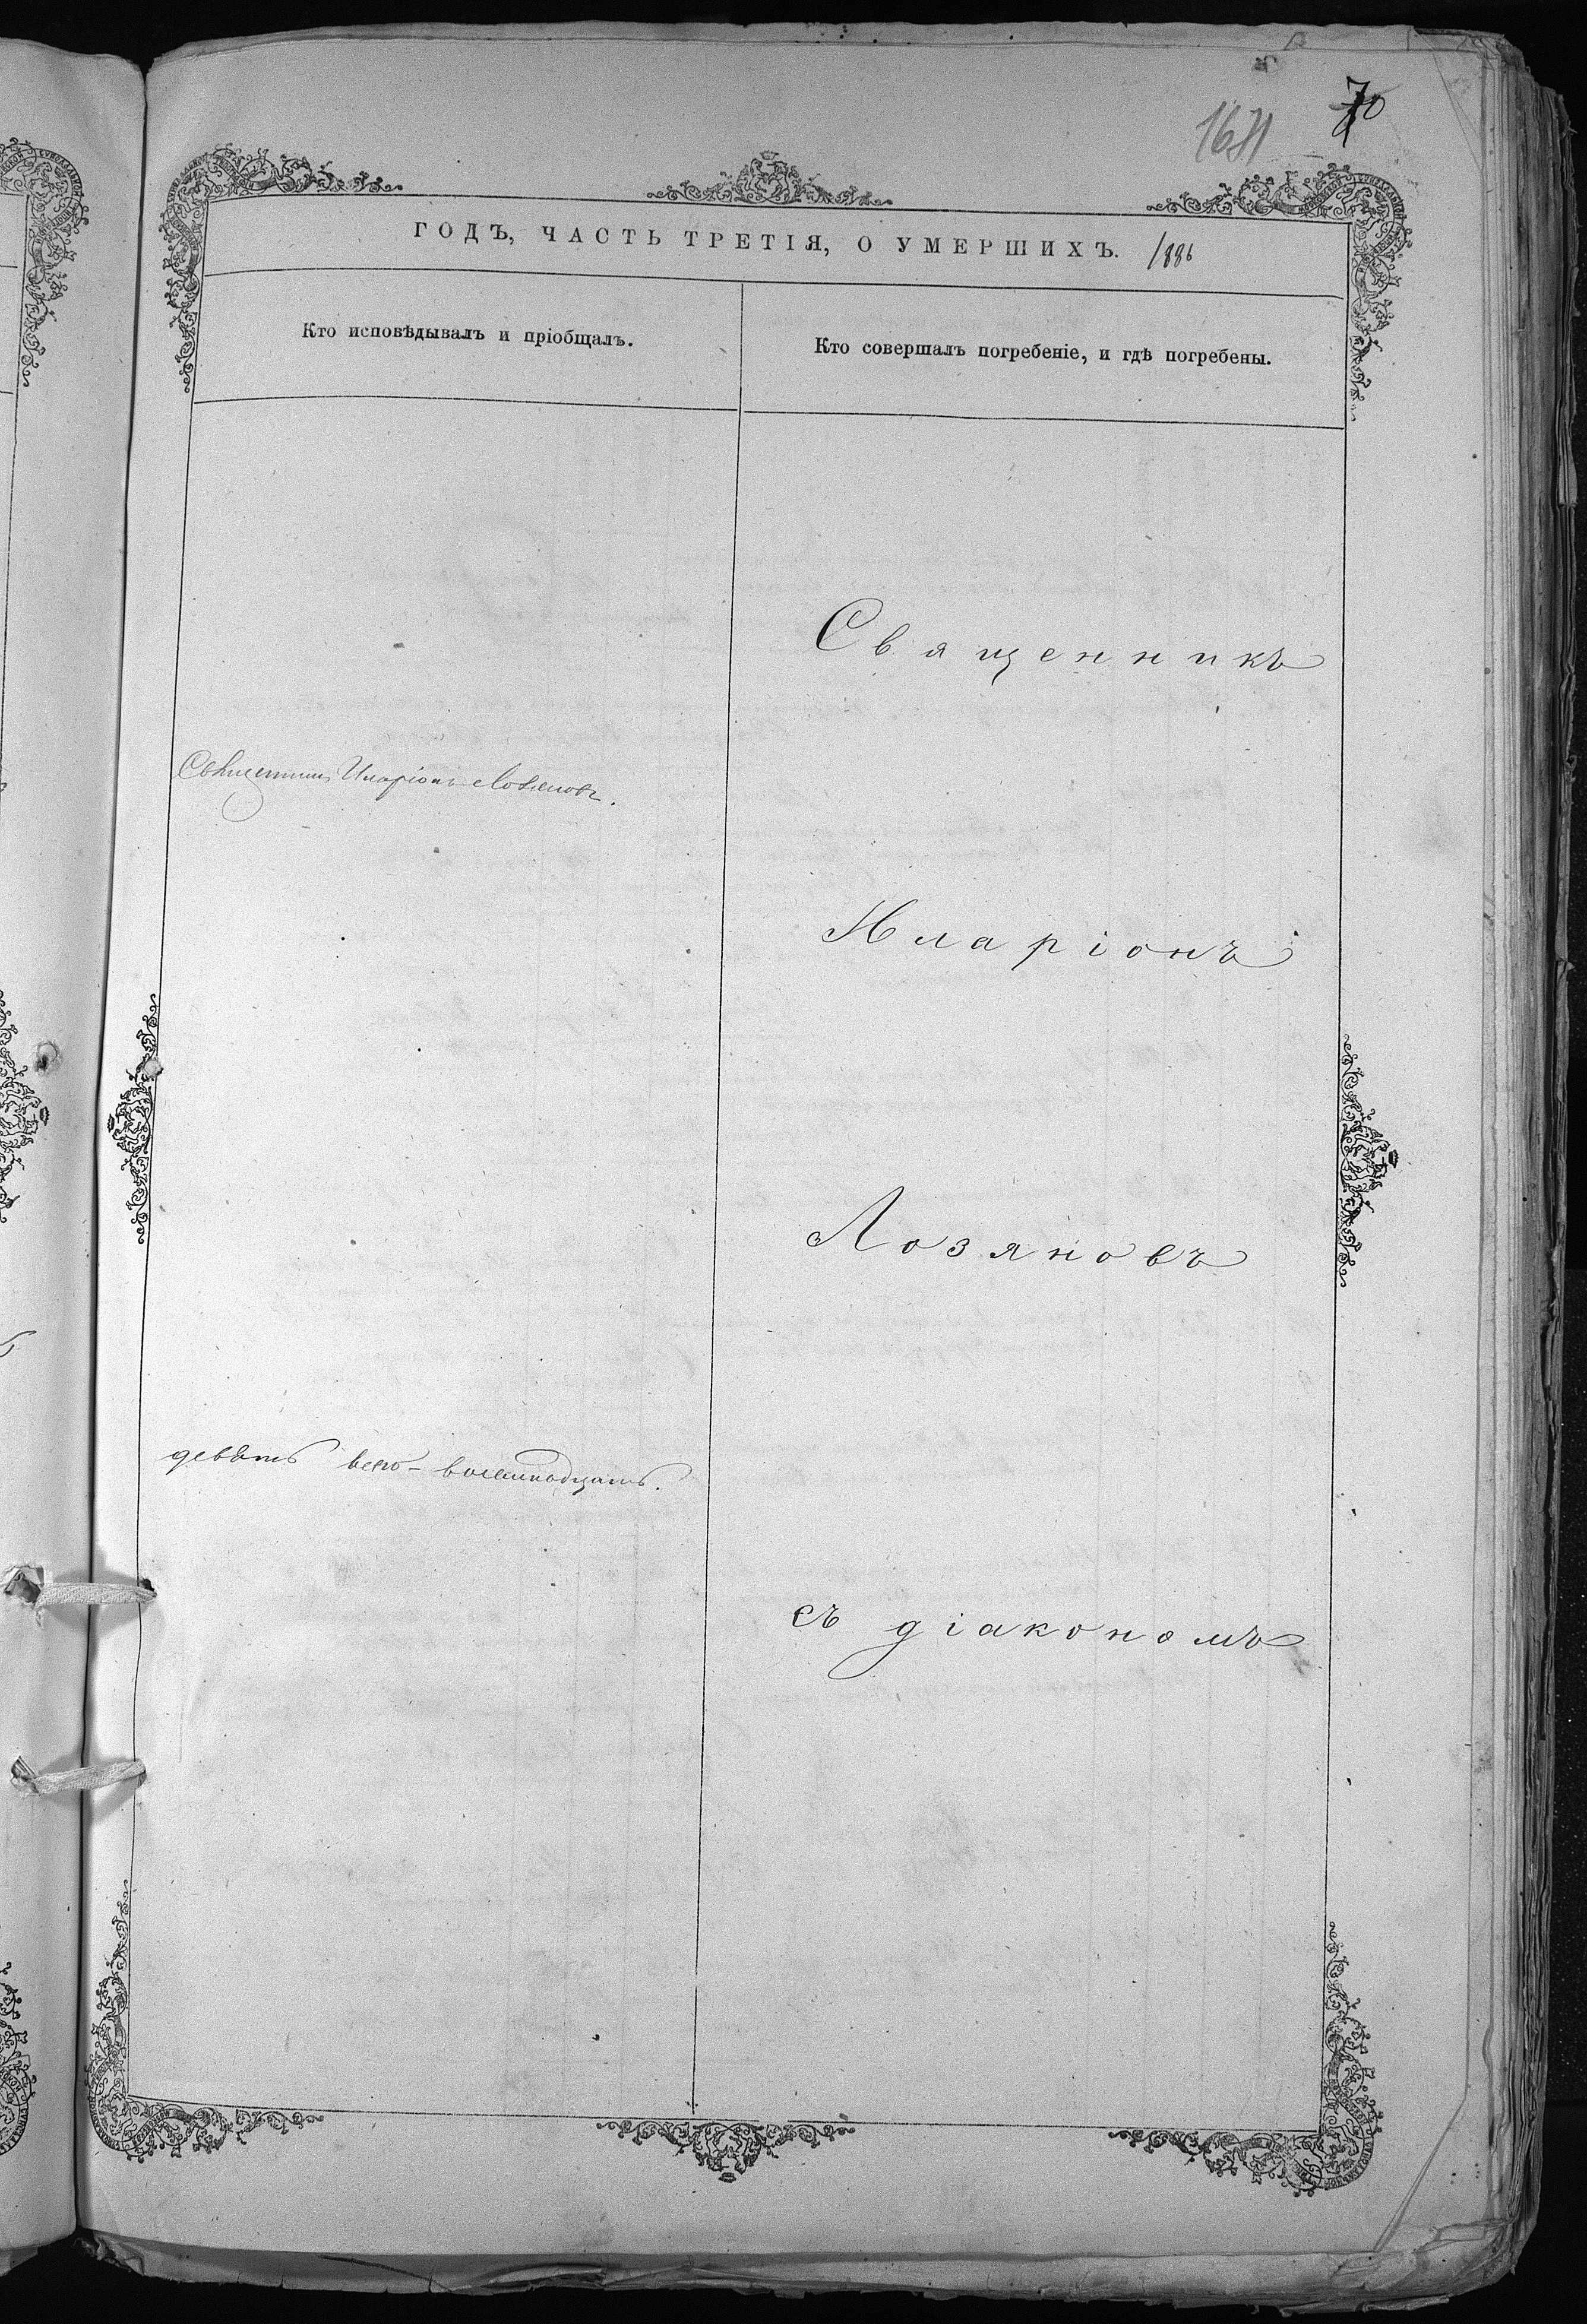 70
ГОДЪ, ЧАСТЬ ТРЕТІЯ, О УМЕРШИХЪ. 1886
Кто исповѣдывалъ и пріобщалъ.
Кто совершалъ погребеніе, и гдѣ погребены.
Священникъ
Священникъ Иларіонъ Лозяновъ.
Иларіонъ
Лозяновъ
девять всего - восемнадцать.
съ діакономъ